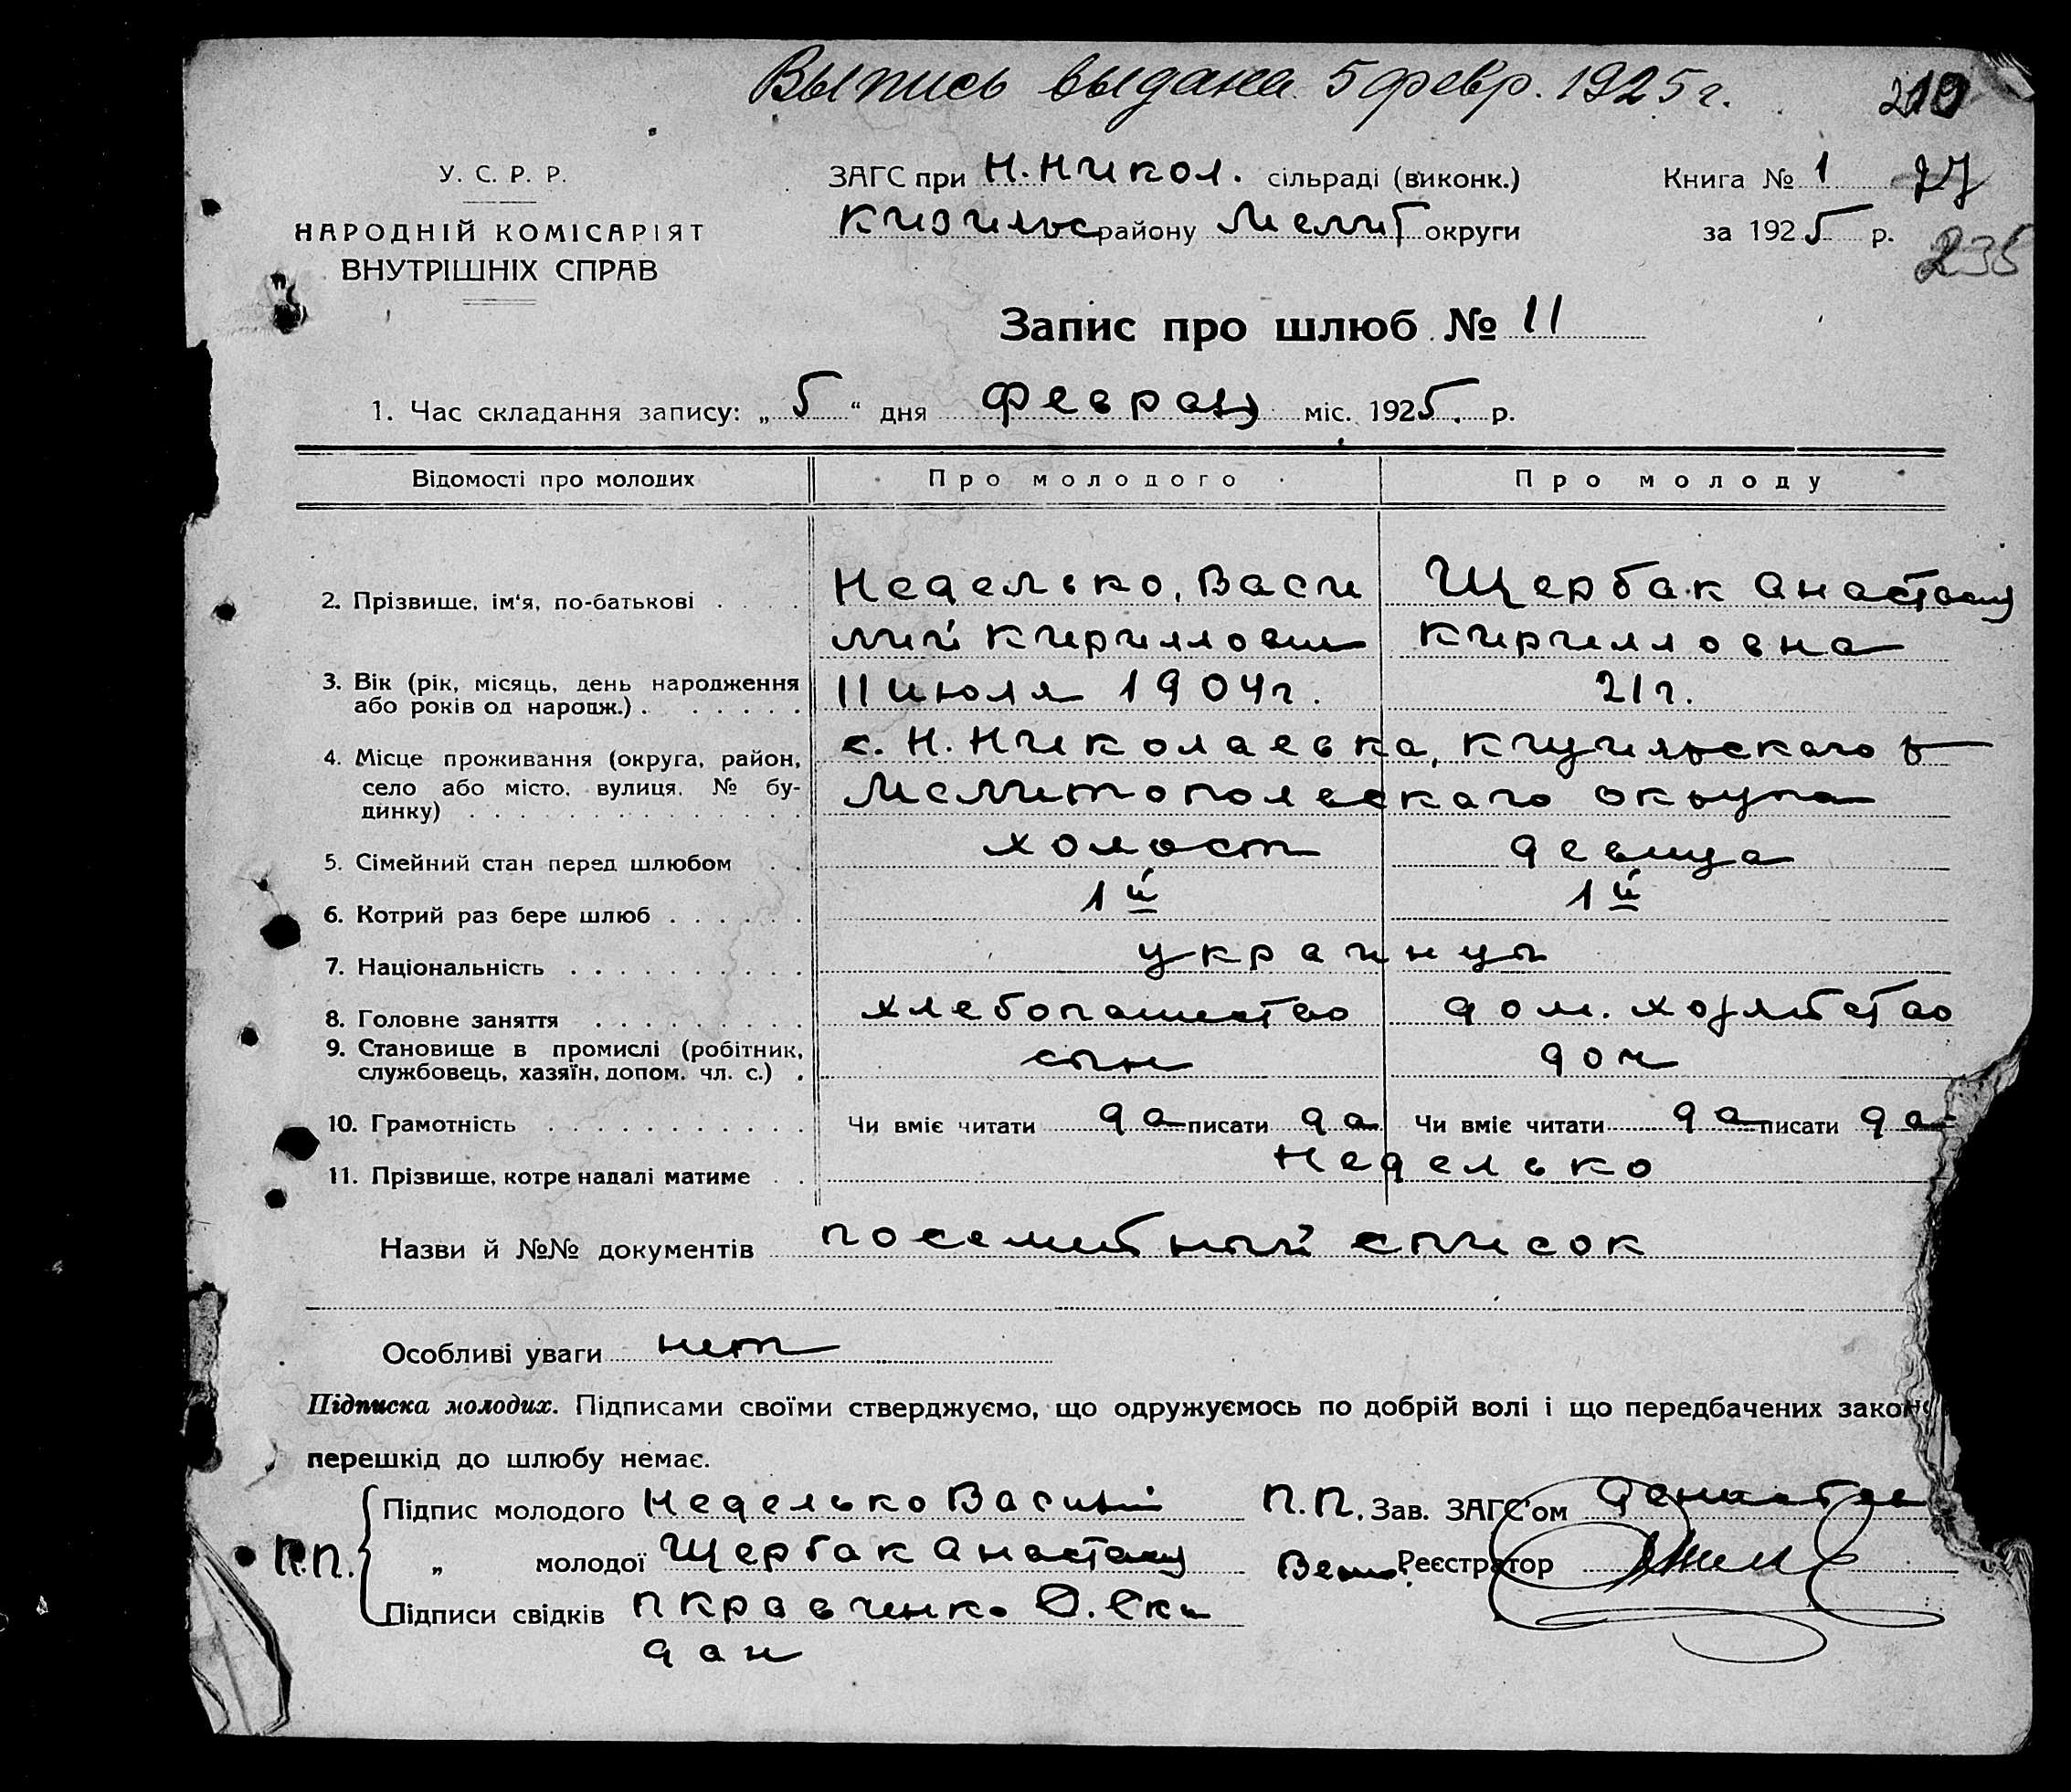 Выпись выдана 5 февр. 1925 г. 210
У. С. Р. Р.
НАРОДНІЙ КОМІСАРІЯТ
ВНУТРІШНІХ СПРАВ
ЗАГС при Н. Никол. сільраді (виконк.)
Кизильс району Мелит округи
Книга № 1 77
за 1925 р.
235
Запис про шлюб № 11
1. Час складання запису: „ 5 “ дня февраля міс. 1925. р.
Відомості про молодих Про молодого Про молоду
2. Прізвище, ім‘я, по-батькові . . . . Неделько, Васи Щербак Анастасия
лий Кириллович Кирилловна
3. Вік (рік, місяць, день народження 11 июля 1904 г. 21 г.
або років од народж.) . . . . . .
4. Місце проживання (округа, район, с. Н. Николаевка, Кизильскаго
село або місто, вулиця, № бу- Мелитопольскаго округа
динку) . . . . . . . . . . . . . .
5. Сімейний стан перед шлюбом . . холост девица
6. Котрий раз бере шлюб . . . . . . 1й 1й
7. Національність . . . . . . . . . . украинцы
8. Головне заняття . . . . . . . . . хлебопашество дом. хозяйство
9. Становище в промислі (робітник, сын дом
службовець, хазяїн, допом. чл. с.) .
10. Грамотність . . . . . . . . . . . Чи вміє читати да писати да Чи вміє читати да писати да
11. Прізвище, котре надалі матиме . . Неделько
Назви й №№ документів посемейный список
Особливі уваги нет
Підписка молодих. Підписами своїми стверджуємо, що одружуємось по добрій волі і що передбачених закон
перешкід до шлюбу немає.
Підпис молодого Неделько Василий П.П. Зав. ЗАГС'ом
П.П. „ молодої Щербак Анастасия Реєстратор
Підписи свідків П Кравченко